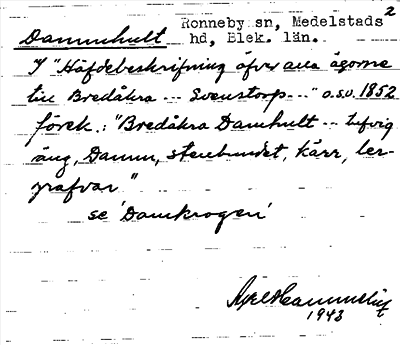 2
Ronneby sn, Medelstads
Dammhult hd, Blek. län.
I "Häfdebeskrifning öfver alla ägorne
till Bredåkra --- Svenstorp---" o.s.v. 1852
förek.: "Bredåkra Damhult --- tufvig
äng, Damm, stenbundet, kärr, ler-
grafvar"
se 'Damkrogen'
1943